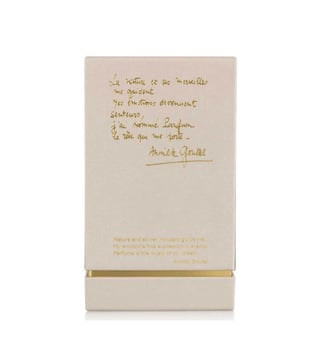 La nature et ses merveilles
me guident
mes émotions deviennent
senteurs,
j'ai nommé Parfum
le rêve qui me porte.
Annick Goutal
Nature and all her wonders guide me.
My emotions find expression in aroma.
Perfume is the music of my dreams.
Annick Goutal